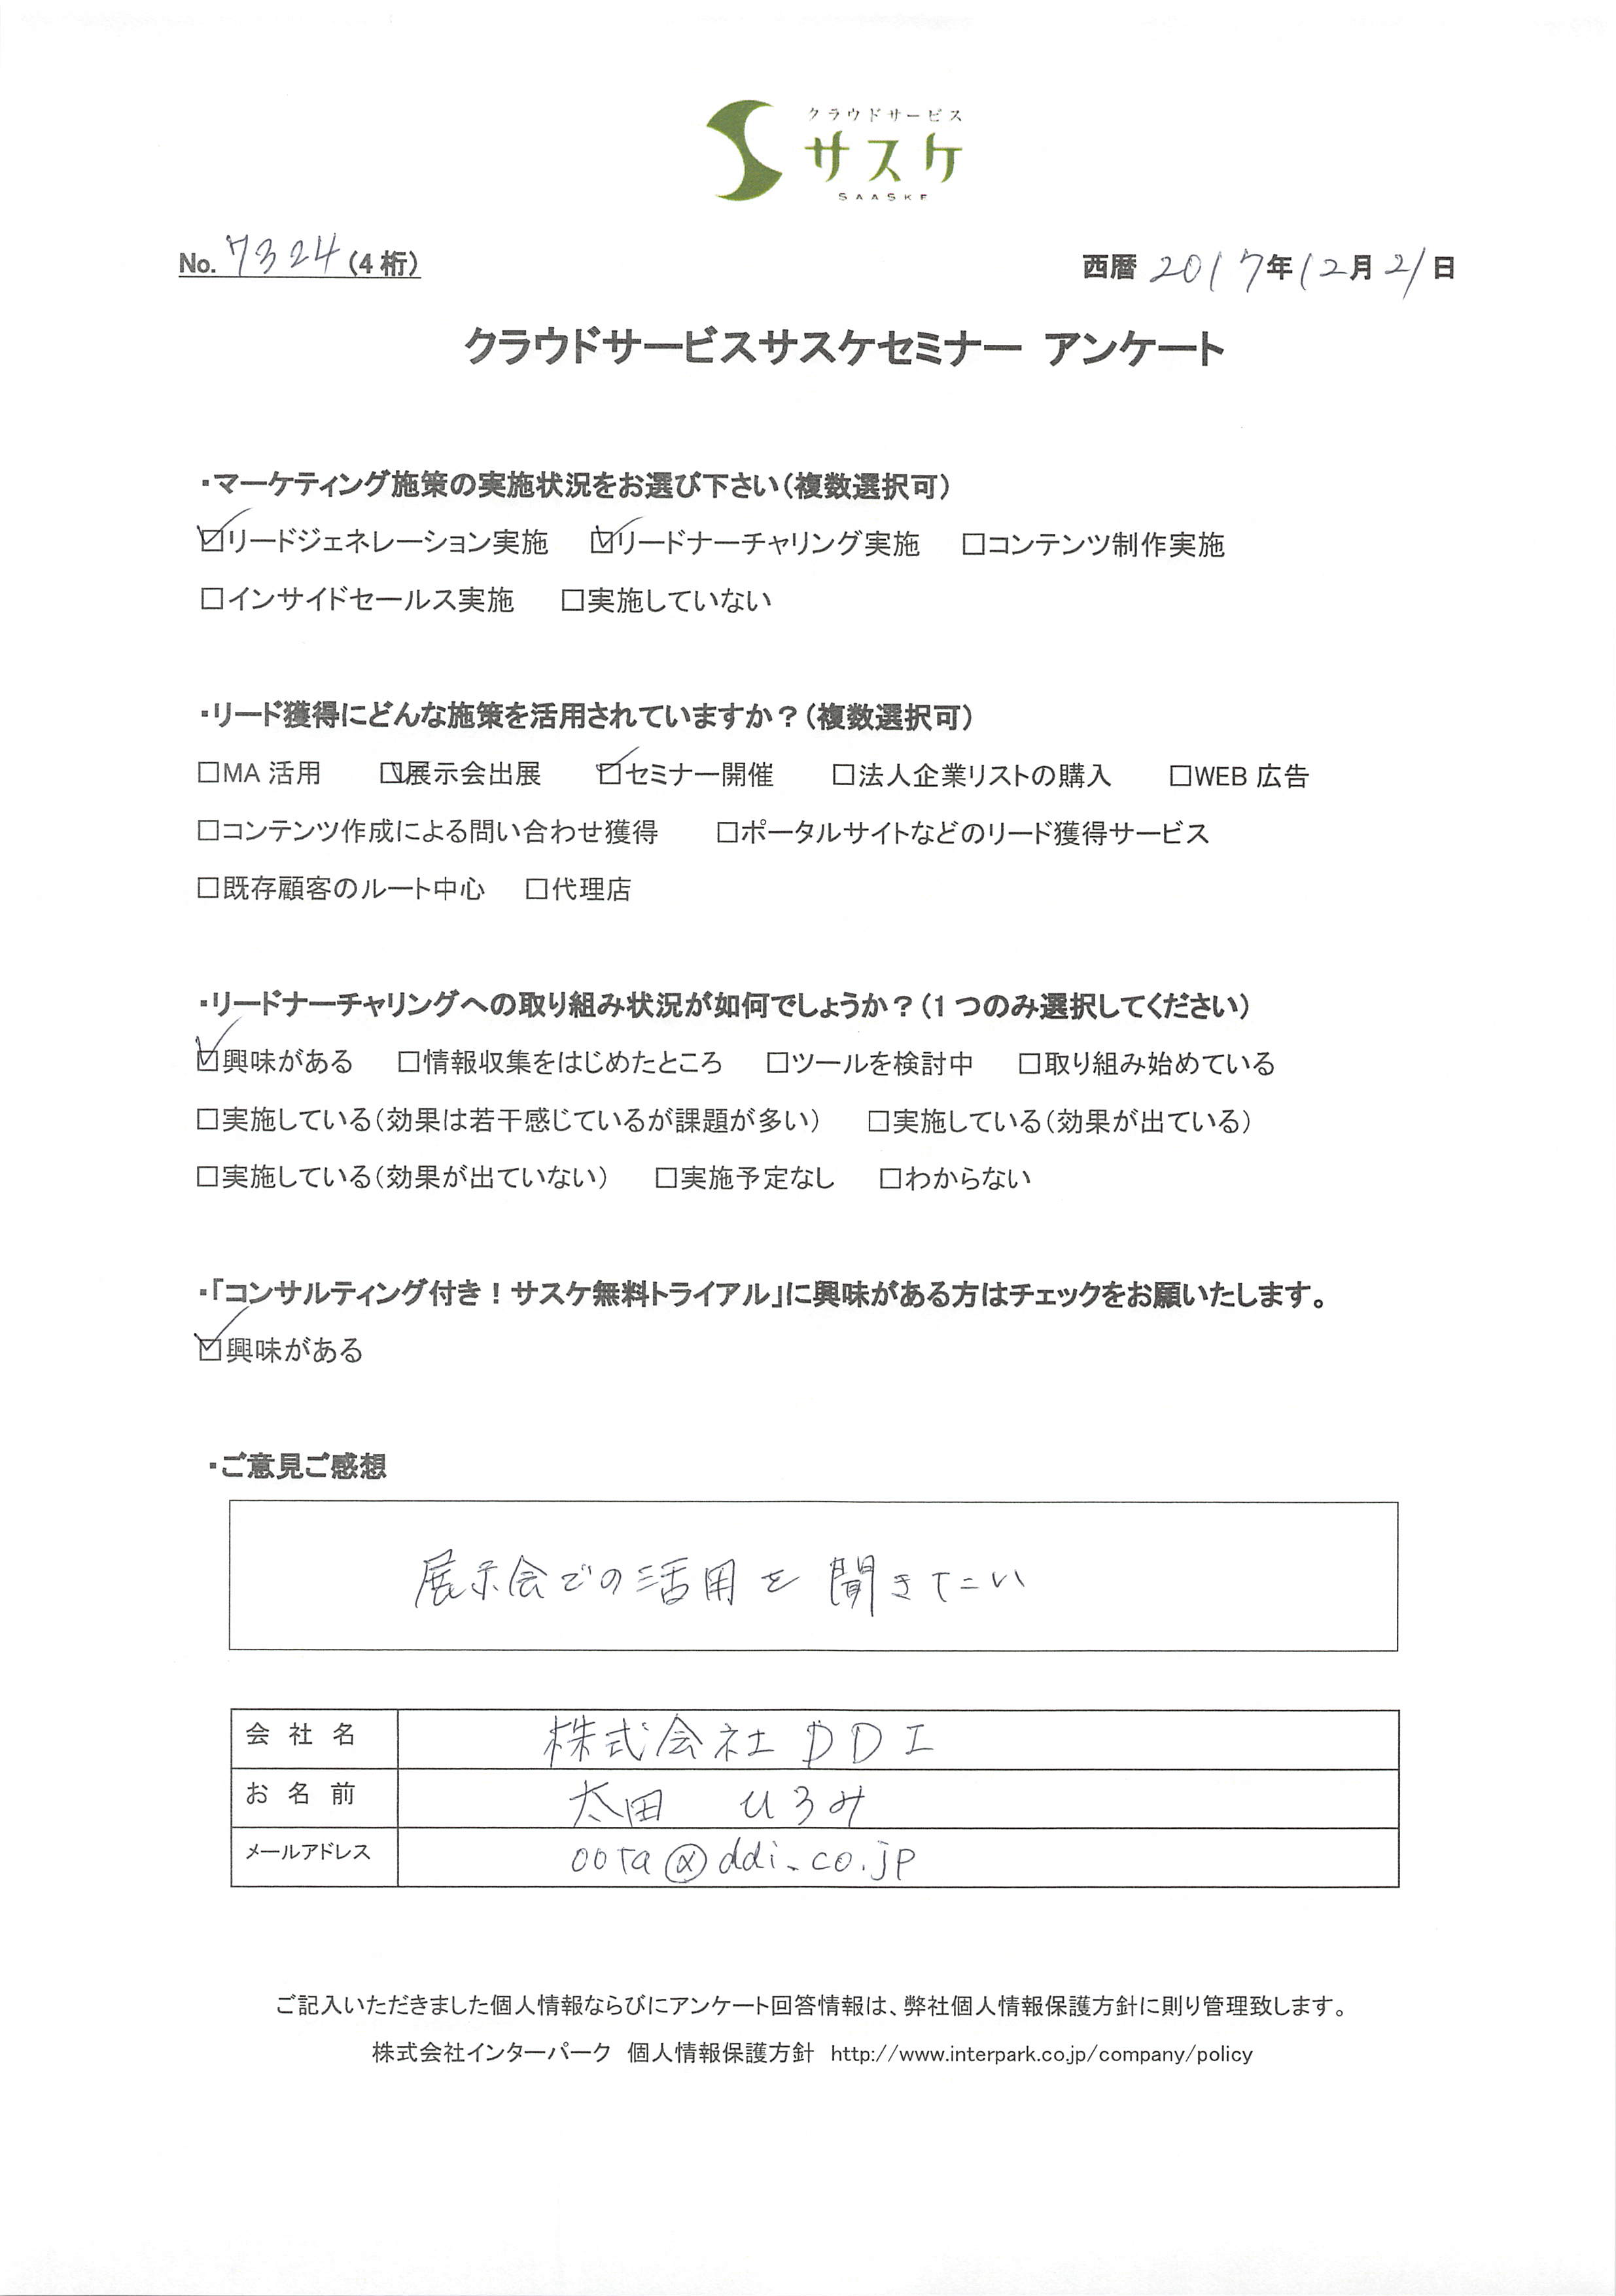 クラウドサービス
サスケ
SAASKE
No. 7324 (4 桁)
西暦 2017年12月21日
クラウドサービスサスケセミナー アンケート
・マーケティング施策の実施状況をお選び下さい(複数選択可)
☑リードジェネレーション実施 ☑リードナーチャリング実施 □コンテンツ制作実施
□インサイドセールス実施 □実施していない
・リード獲得にどんな施策を活用されていますか？(複数選択可)
□MA 活用 ☑展示会出展 ☑セミナー開催 □法人企業リストの購入 □WEB 広告
□コンテンツ作成による問い合わせ獲得 □ポータルサイトなどのリード獲得サービス
□既存顧客のルート中心 □代理店
・リードナーチャリングへの取り組み状況が如何でしょうか？(1 つのみ選択してください)
☑興味がある □情報収集をはじめたところ □ツールを検討中 □取り組み始めている
□実施している(効果は若干感じているが課題が多い) □実施している(効果が出ている)
□実施している(効果が出ていない) □実施予定なし □わからない
・「コンサルティング付き！サスケ無料トライアル」に興味がある方はチェックをお願いたします。
☑興味がある
・ご意見ご感想
展示会での活用を聞きたい
会 社 名 株式会社DDI
お 名 前 太田 ひろみ
メールアドレス oota@ddi.co.jp
ご記入いただきました個人情報ならびにアンケート回答情報は、弊社個人情報保護方針に則り管理致します。
株式会社インターパーク 個人情報保護方針 http://www.interpark.co.jp/company/policy